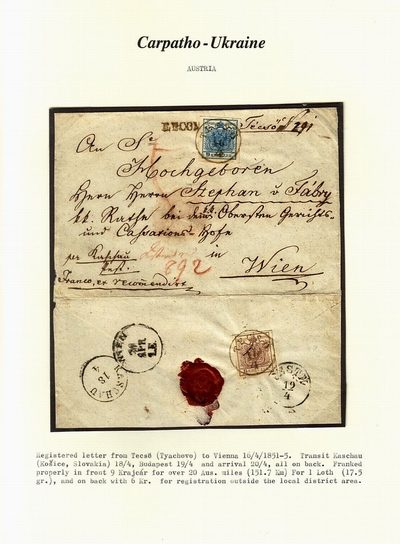 Carpatho-Ukraine
AUSTRIA
RECOM
Técső
An Se
Hochgeboren
Herrn Herrn Stephan v Fábry
kk. Rathe bei dem Obersten Gerichts-
und Cassations-Hofe
in
per Kaschau
Pest.
Wien
892
Franco, et recomandirt
WIEN
20
APR
KASCHAU
18
4
PESTH
19
4
Registered letter from Tecső (Tyachovo) to Vienna 16/4/1851-5. Transit Kaschau
(Košice, Slovakia) 18/4, Budapest 19/4 and arrival 20/4, all on back. Franked
properly in front 9 Krajcár for over 20 Aus. miles (151.7 Km) For 1 Loth (17.5
gr.), and on back with 6 Kr. for registration outside the local district area.